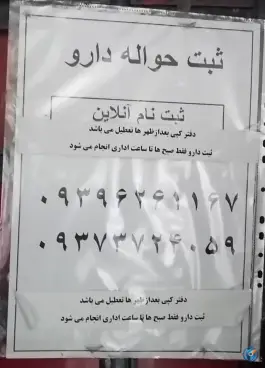 ثبت حواله دارو
ثبت نام آنلاین
دفتر کپی بعدازظهر ها تعطیل می باشد
ثبت دارو فقط صبح ها تا ساعت اداری انجام می شود
۰۹۳۹۶۲۶۱۱۶۷
۰۹۳۷۳۷۲۴۰۵۹
دفتر کپی بعدازظهر ها تعطیل می باشد
ثبت دارو فقط صبح ها تا ساعت اداری انجام می شود